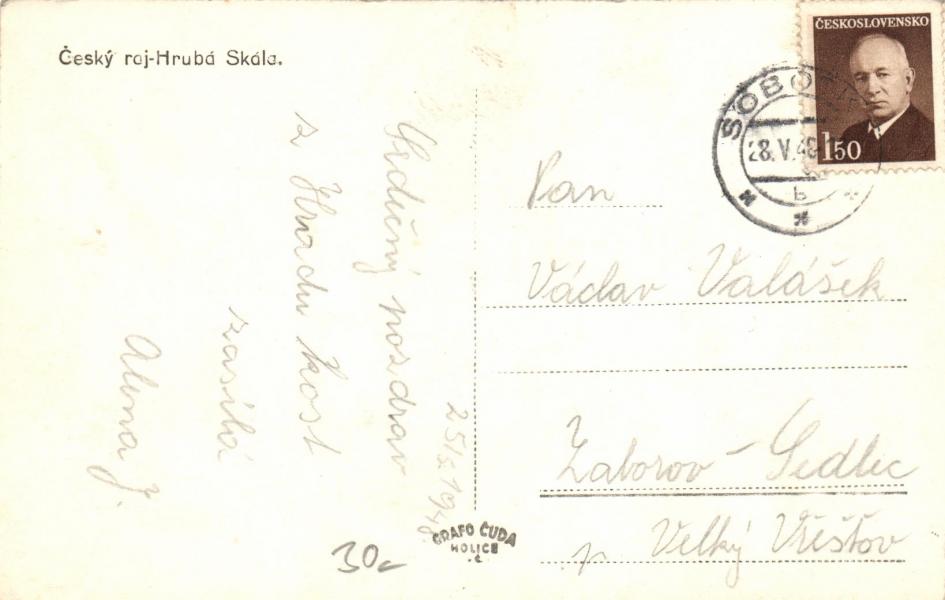 Český raj-Hrubá Skála.
Srdečný pozdrav
z Hradu Kost
zasílá
Alena J.
25/5 1948.
ČESKOSLOVENSKO
1 50
SOBOTKA
28. V. 48
b
Pan
Václav Valášek
Zaborov - Sedlec
p Velký Vřešťov
GRAFO ČUDA
HOLICE
Č.
30,-